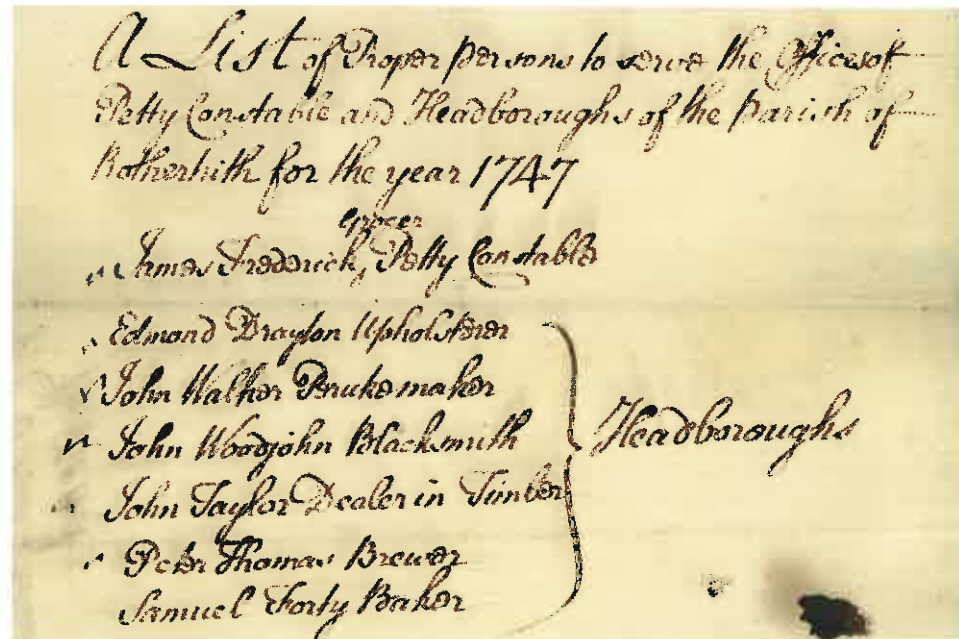 A List of Proper persons to serve the Offices of
Petty Constable and Headboroughs of the Parish of
Rotherhith for the year 1747
Grocer
James Frederick, Petty Constable
Edmond Drayton Upholsterer
John Walker Perukemaker
John Woodjohn Blacksmith
Headboroughs
John Taylor Dealer in Timber
Peter Thomas Brewer
Samuel Forty Baker